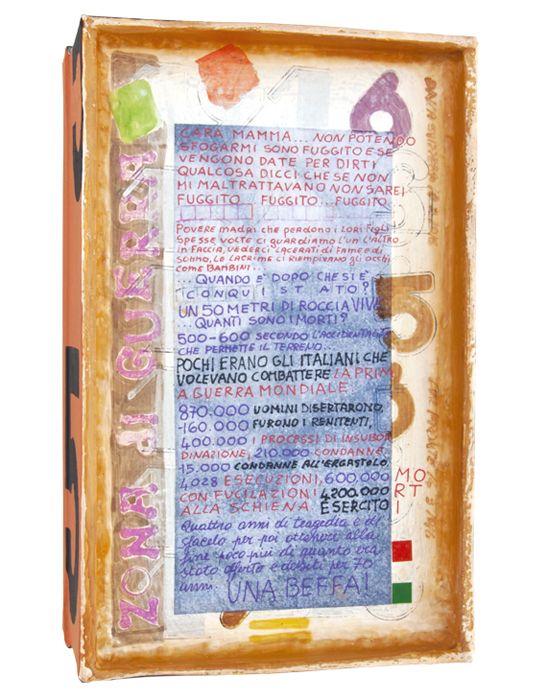 ZONA di GUERRA
6
CARA MAMMA... NON POTENDO
SFOGARMI SONO FUGGITO E SE
VENGONO DATE PER DIRTI
QUALCOSA DICCI CHE SE NON
MI MALTRATTAVANO NON SAREI
FUGGITO... FUGGITO... FUGGITO.
POVERE MADRI che perdono i LORI FIGLI
SPESSE VOLTE CI GUARDIAMO L'UN L'ALTRO
IN FACCIA, VEDERCI LACERATI DI FAME E DI
SONNO, LE LACRIME CI RIEMPIVANO GLI OCCHI
COME BAMBINI...
...QUANDO E' DOPO CHE SI E'
CONQUISTATO?
UN 50 METRI DI ROCCIA VIVA
...QUANTI SONO I MORTI?
500-600 SECONDO L'ACCIDENTALITÀ
CHE PERMETTE IL TERRENO...
POCHI ERANO GLI ITALIANI CHE
VOLEVANO COMBATTERE LA PRIM
A GUERRA MONDIALE
870.000 UOMINI DISERTARONO,
-160.000 FURONO I RENITENTI,
400.000 I PROCESSI DI INSUBOR
DINAZIONE, 210.000 CONDANNE
-15.000 CONDANNE ALL'ERGASTOLO,
4.028 ESECUZIONI, 600.000 MO
CON FUCILAZIONI RT
ALLA SCHIENA. 4.200.000 I
ESERCITO
Quattro anni di tragedia e di
per poi ottenere alla
fine poco più di quanto era
stato offerto e debiti per 70
anni. UNA BEFFA!
5